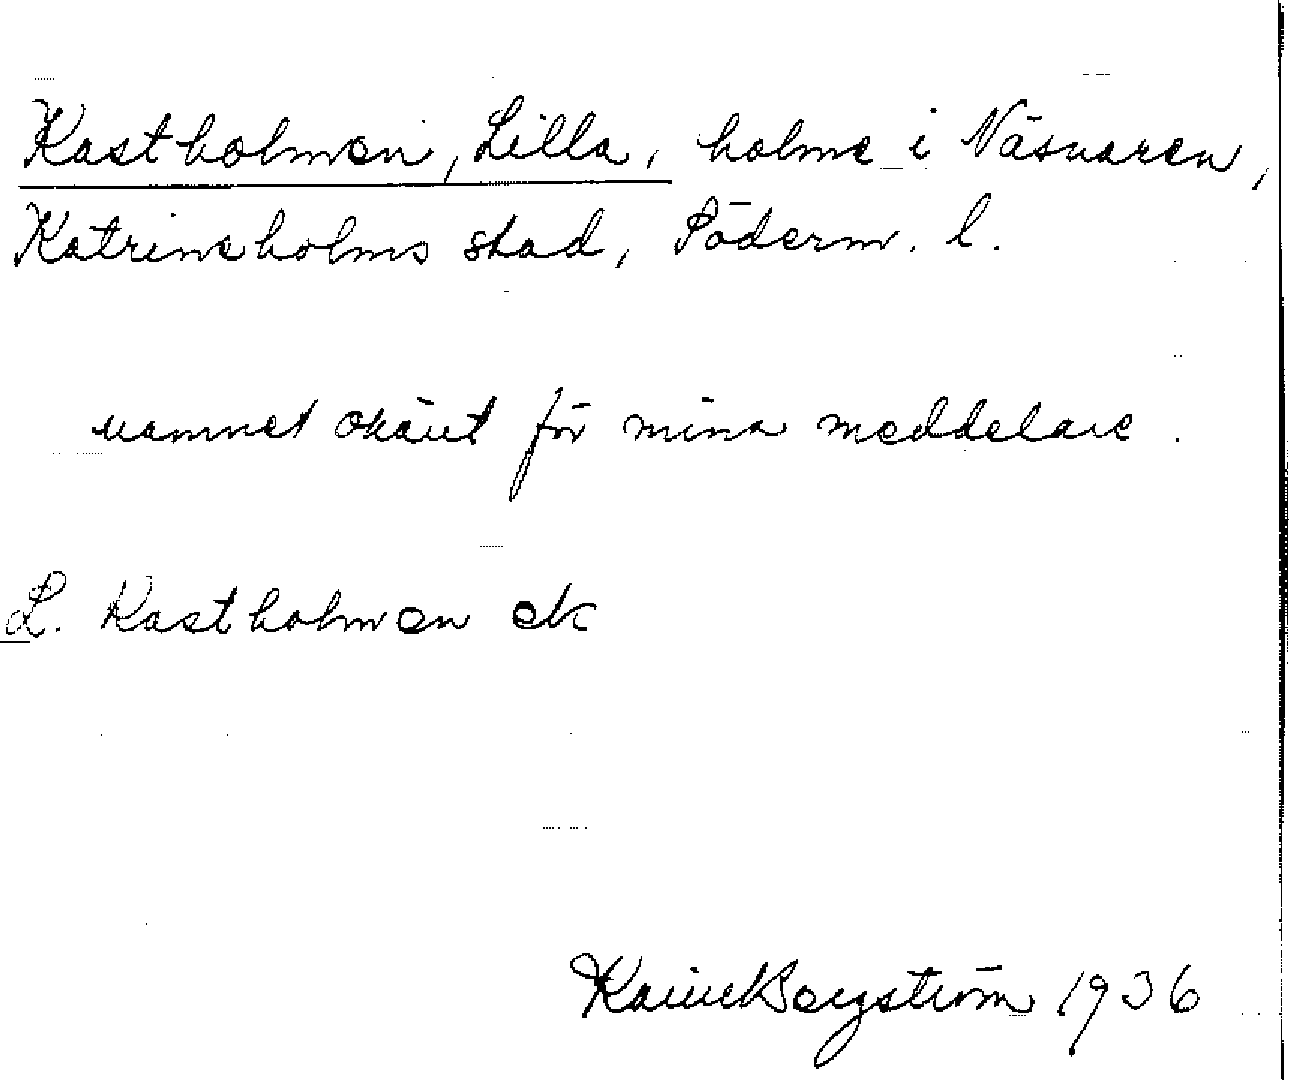 Kastholmen, Lilla, holme i Näsnaren,
Katrineholms stad, Söderm. l.
namnet okänt för mina meddelare.
L. Kastholmen ek
Karin Bergström 1936